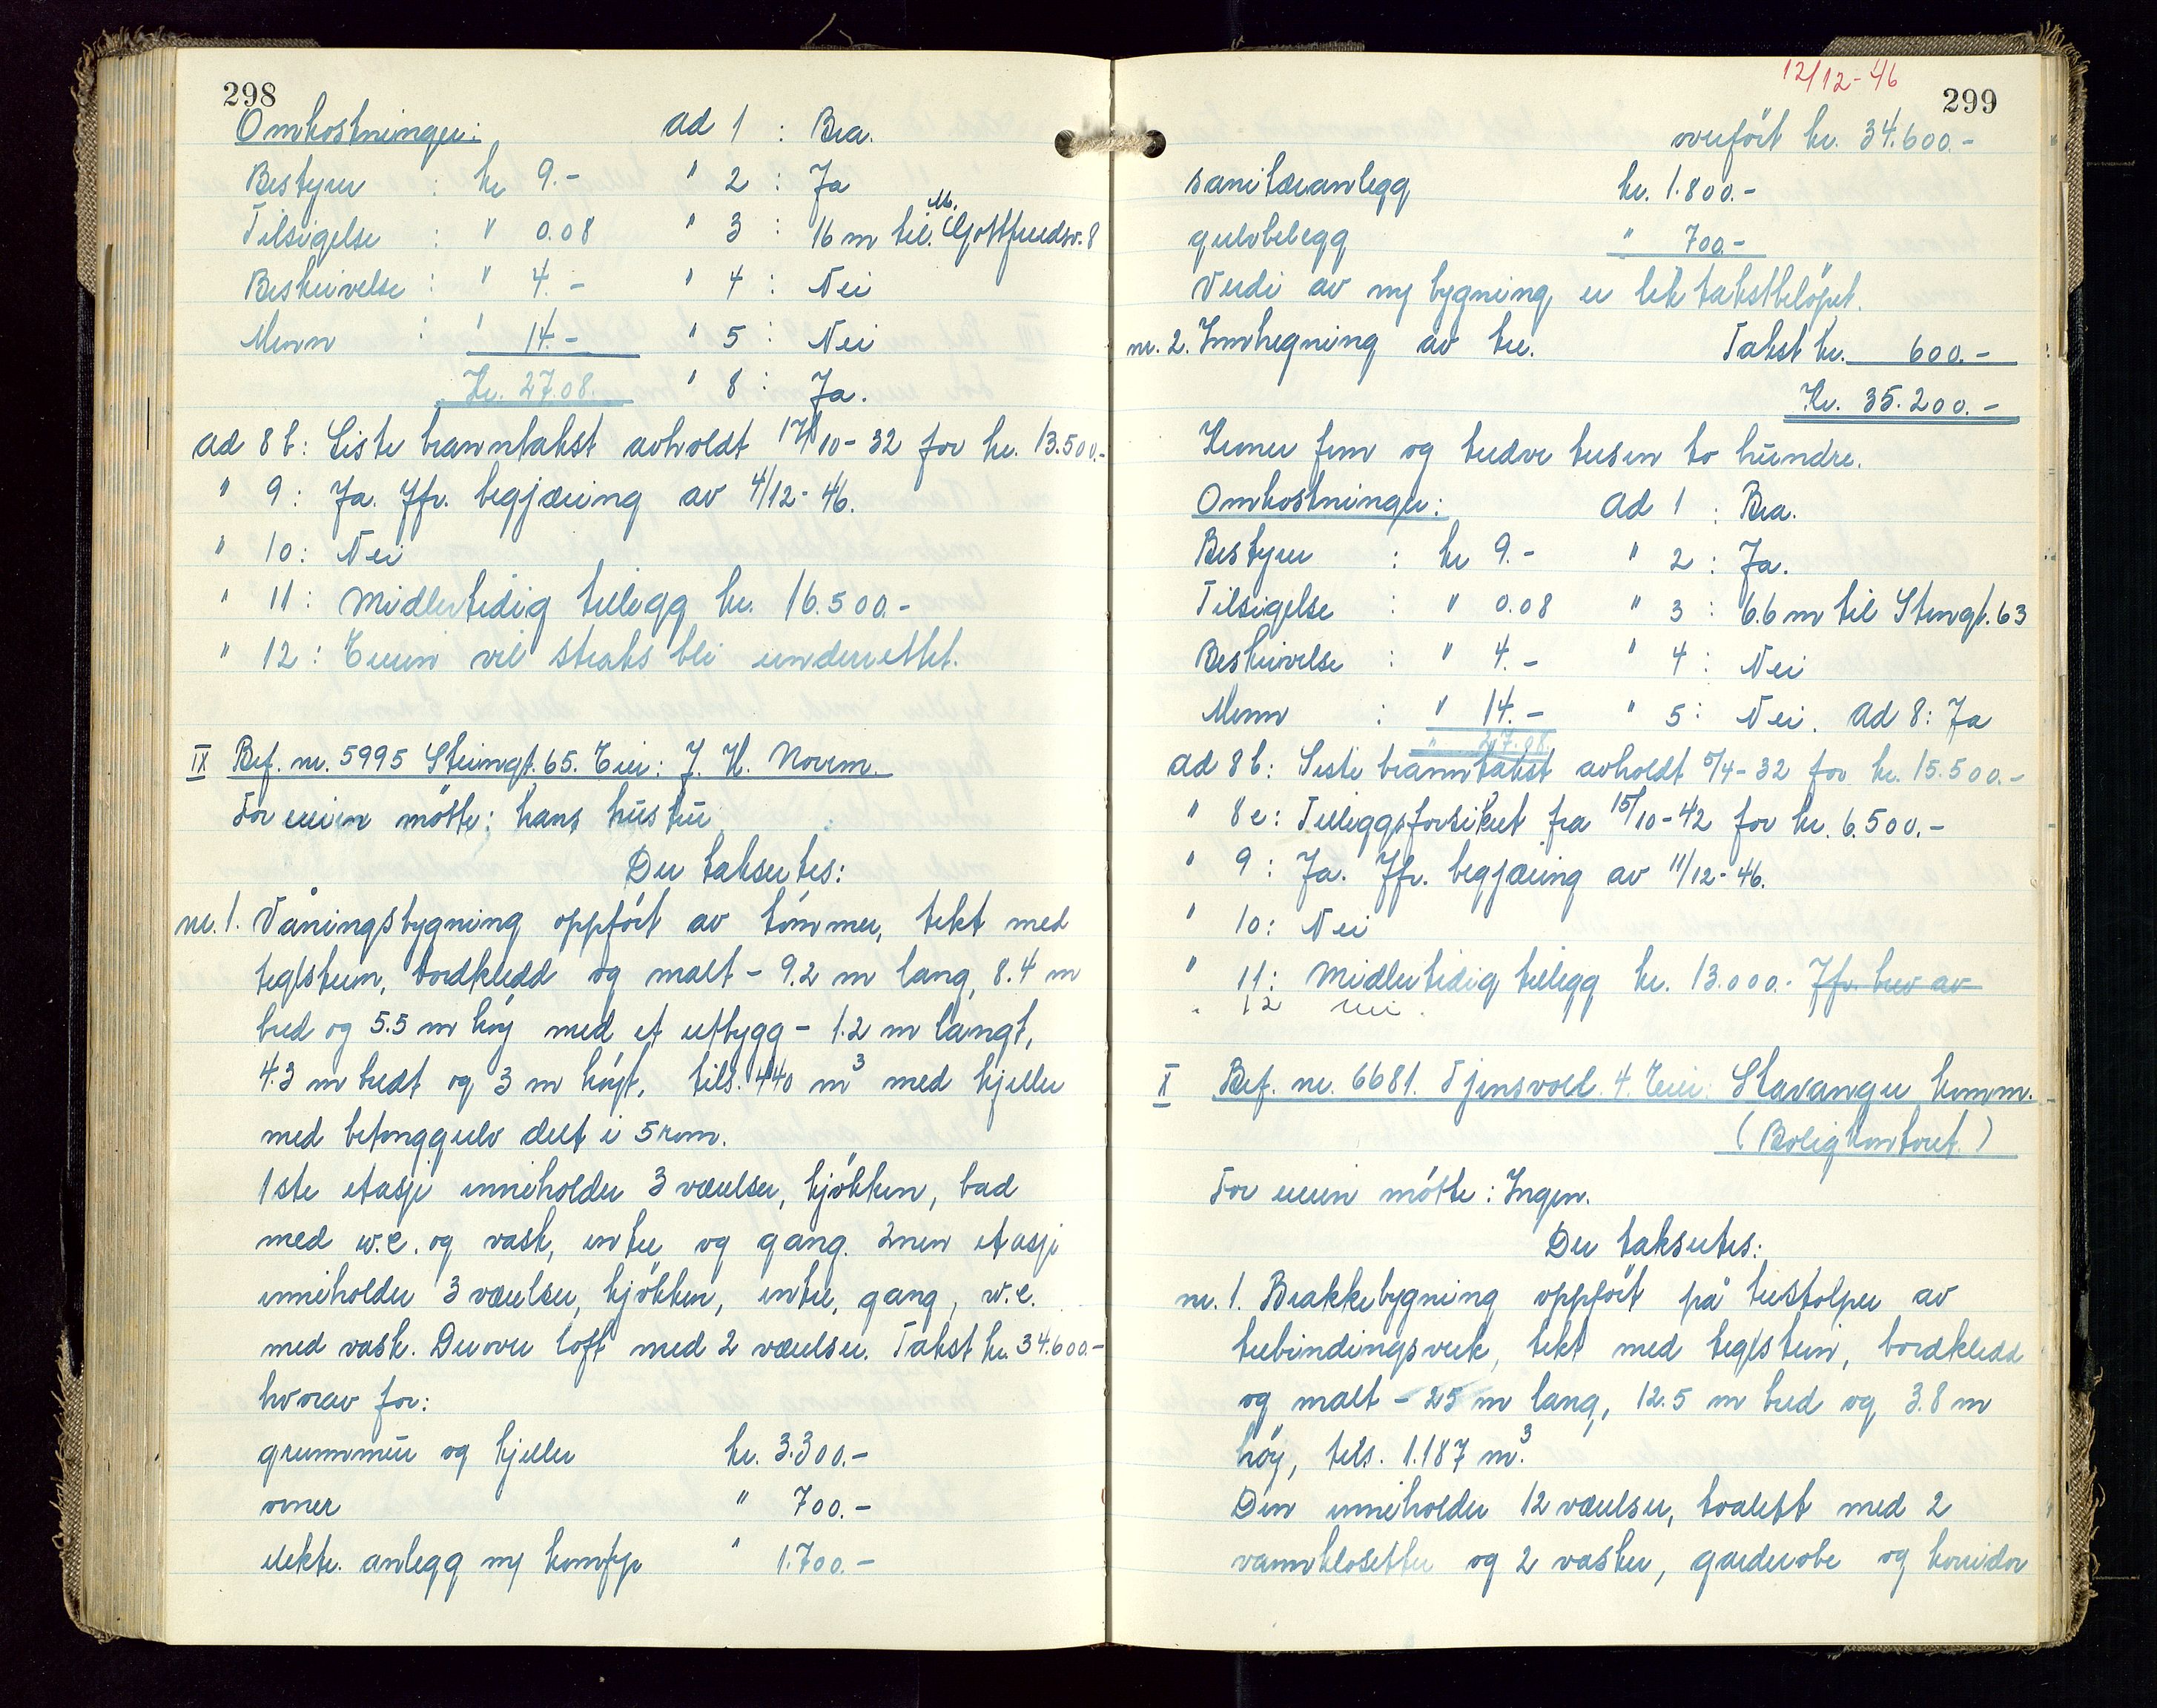 298
Omkostninger: ad 1 : Bra.
Bestyrer : kr 9.- " 2 : Ja
Tilsigelse : " 0.08 " 3 : 16 m til M. Gottfriedsv. 8
Beskrivelse : " 4.- " 4 : Nei
Menn : " 14.- " 5 : Nei
Kr. 27.08. " 8 : Ja.
ad 8 b: Siste branntakst avholdt 17/10-32 for kr. 13.500.-
" 9 : Ja. Jfr. begjæring av 4/12-46.
" 10: Nei
" 11: Midlertidig tillegg kr. 16.500.-
" 12: Eieren vil straks bli underrettet.
IX Bef. nr. 5995 Steingt. 65. Eier: J. H. Norem.
For eieren møtte: hans hustru
Der takseres:
nr. 1. Våningsbygning oppført av tømmer, tekt med
teglstein, bordkledd og malt - 9.2 m lang, 8.4 m
bred og 5.5 m høy med et utbygg - 1.2 m langt,
4.3 m bredt og 3 m høyt, tils. 440 m³ med kjeller
med betonggulv delt i 5 rom.
1ste etasje inneholder 3 værelser, kjøkken, bad
med w.c. og vask, entre og gang. 2nen etasje
inneholder 3 værelser, kjøkken, entre, gang, w.c.
med vask. Derover loft med 2 værelser. Takst kr. 34.600.-
hvorav for:
grunnmur og kjeller kr. 3.300.-
ovner " 700.-
elektr. anlegg m/ komfyr " 1.700.-
12/12-46
299
overført kr. 34.600.-
sanitæranlegg kr. 1.800.-
gulvbelegg " 700.-
Verdi av ny bygning er lik takstbeløpet.
nr. 2. Innhegning av tre. Takst kr. 600.-
Kr. 35.200.-
Kroner fem og tredve tusen to hundre.
Omkostninger: ad 1 : Bra.
Bestyrer : kr 9.- " 2 : Ja.
Tilsigelse : " 0.08 " 3 : 6.6 m til Steingt. 63
Beskrivelse : " 4.- " 4 : Nei
Menn : " 14.- " 5 : Nei. ad 8: Ja
" 27.08.
ad 8 b: Siste branntakst avholdt 5/4-32 for kr. 15.500.-
" 8 e: Tilleggsforsikret fra 15/10-42 for kr. 6.500.-
" 9 : Ja. Jfr. begjæring av 11/12-46.
" 10: Nei
" 11: Midlertidig tillegg kr. 13.000.- Jfr. brev av
" 12 nei.
X Bef. nr. 6681. Tjensvoll 4. Eier: Stavanger komm.
(Boligkontoret.)
For eieren møtte: Ingen.
Der takseres:
nr. 1. Brakkebygning oppført på trestolper av
trebindingsverk, tekt med teglstein, bordkledd
og malt - 25 m lang, 12.5 m bred og 3.8 m
høy, tils. 1.187 m³.
Den inneholder 12 værelser, toalett med 2
vannklosetter og 2 vasker, garderobe og korridor